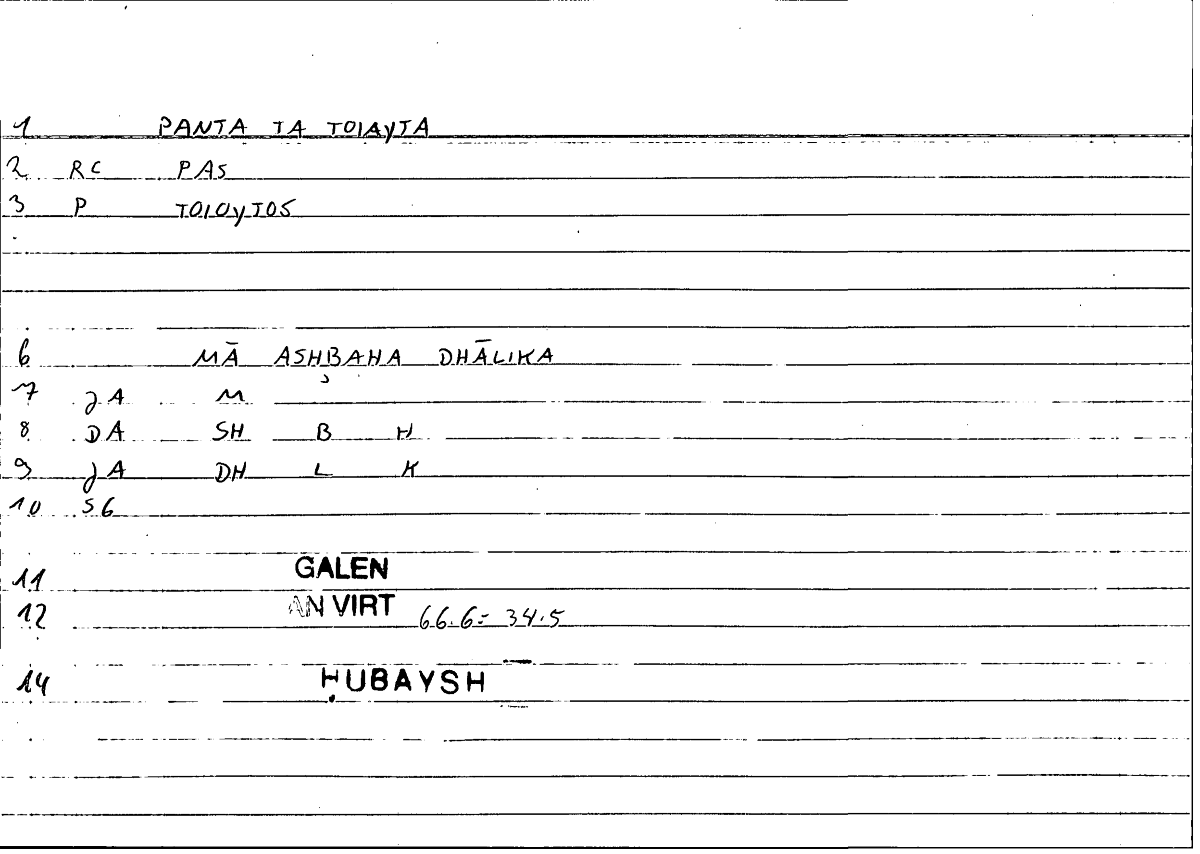 1 PANTA TA TOIAYTA
2 RC PAS
3 P TOIOYTOS
6 MĀ ASHBAHA DHĀLIKA
7 JA M
8 DA SH B H
9 JA DH L K
10 SG
11 GALEN
12 AN VIRT 66.6 = 34.5
14 ḤUBAYSH